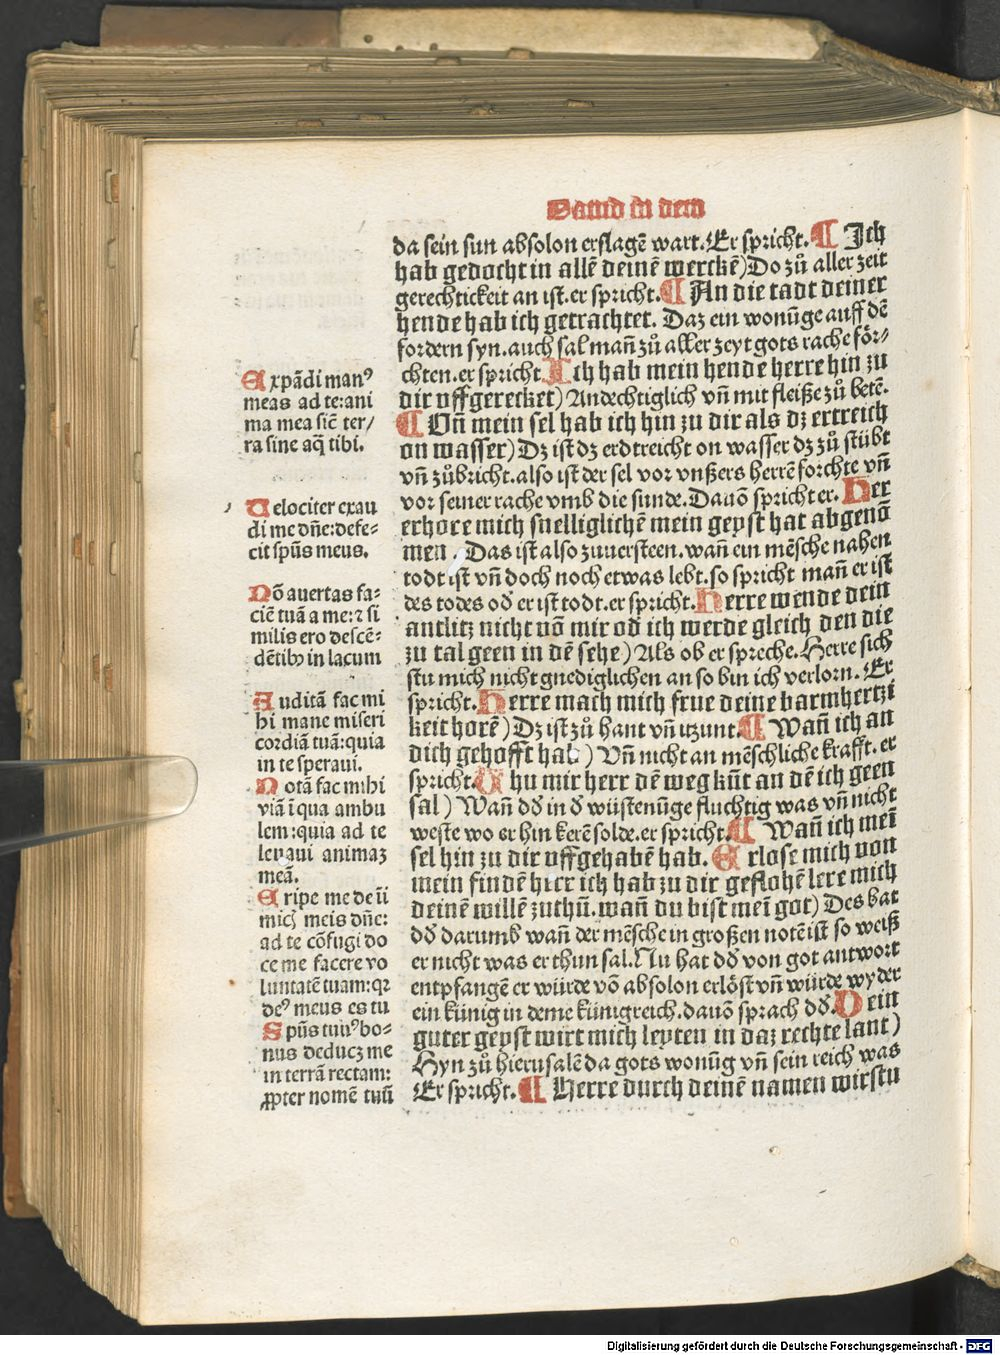 Dauid in dem
da sein sun absolon erslagē wart. Er spricht. ¶ Ich
hab gedocht in allē deinē werckē) Do zů aller zeit
gerechtickeit an ist. er spricht. ¶ An die tadt deiner
hende hab ich getrachtet. Daz ein wonūge auff dē
fordern syn. auch sal mañ zů aller zeyt gots rache för⸗
chten. er spricht. Iich hab mein hende herre hin zu
dir uffgerecket) Andechtiglich vñ mit fleiße zů betē.
¶ Oñ mein sel hab ich hin zu dir als dz ertreich
on wasser) Dz ist dz erdtreicht on wasser dz zů stübt
vñ zůbricht. also ist der sel vor vnßers herrē forchte vñ
vor seiner rache vmb die sunde. Dauō spricht er. Her
erhore mich snelliglichē mein geyst hat abgenō
men. Das ist also zuuersteen. wañ ein mēsche nahen
todt ist vñ doch noch etwas lebt. so spricht mañ er ist
des todes oď er ist todt. er spricht. Herre wende dein
antlitz nicht vō mir oď ich werde gleich den die
zu tal geen in dē sehe) Als ob er spreche. Herre sich
stu mich nicht gnediglichen an so bin ich verlorn. Er
spricht. Herre mach mich frue deine barmhertzi
keit horē) Dz ist zů hant vñ itzunt. ¶ Wañ ich an
dich gehofft hab) Vñ nicht an mēschliche krafft. er
spricht. Thu mir herr dē weg kūt an dē ich geen
sal) Wañ dď in ď wüstenūge fluchtig was vñ nicht
weste wo er hin kerē solde. er spricht. ¶ Wañ ich meī
sel hin zu dir uffgehabē hab. Erlose mich von
mein findē hrer ich hab zu dir geflohē lere mich
deinē willē zuthū. wañ du bist meī got) Des bat
dď darumb wañ der mēsche in großen notē ist so weiß
er nicht was er thun sal. Nu hat dď von got antwort
entpfangē er würde vō absolon erlöst vñ würde wyder
ein künig in deme künigreich. dauō sprach dď. Dein
guter geyst wirt mich leyten in daz rechte lant)
Hyn zů hierusalē da gots wonūg vñ sein reich was
Er spricht. ¶ Herre durch deinē namen wirstu
Expādi manꝰ
meas ad te: ani
ma mea siē ter/
ra sine aq̄ tibi.
Velociter exau
di me dñe: defe⸗
cit spūs meus.
Nō auertas fa⸗
ciē tuā a me: ⁊ si
milis ero descē⸗
dētibꝰ in lacum
Auditā fac mi
hi mane miseri
cordiā tuā: quia
in te speraui.
Notā fac mihi
viā ī qua ambu
lem: quia ad te
leuaui animaz
meā.
Eripe me de iī
micꝭ meis dñe:
ad te cōfugi do
ce me facere vo
luntatē tuam: qꝛ
deꝰ meus es tu
Spūs tuꝰ bo⸗
nus deducz me
in terrā rectam:
ꝓpter nomē tuū
Digitalisierung gefördert durch die Deutsche Forschungsgemeinschaft - DFG